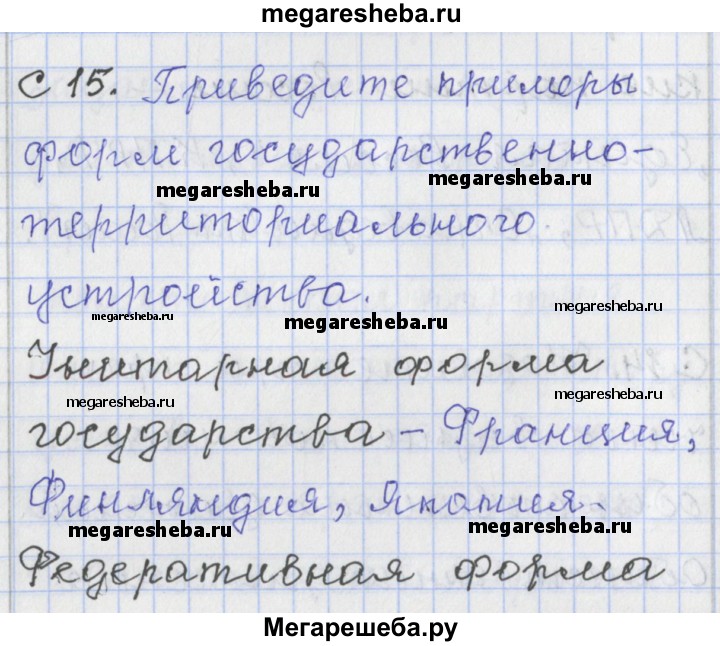 megaresheba.ru
С 15. Приведите примеры
форм государственно-
megaresheba.ru
megaresheba.ru
территориального
устройства.
megaresheba.ru
megaresheba.ru
megaresheba.ru
Унитарная форма
megaresheba.ru
megaresheba.ru
государства – Франция,
Финляндия, Япония.
megaresheba.ru
megaresheba.ru
Федеративная форма
Мегарешеба.ру